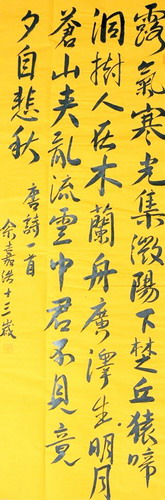 露氣寒光集微陽下楚丘猿啼
洞樹人在木蘭舟廣澤生明月
蒼山夾乱流雲中君不見竟
夕自悲秋
唐詩一首
余嘉洪十三歲